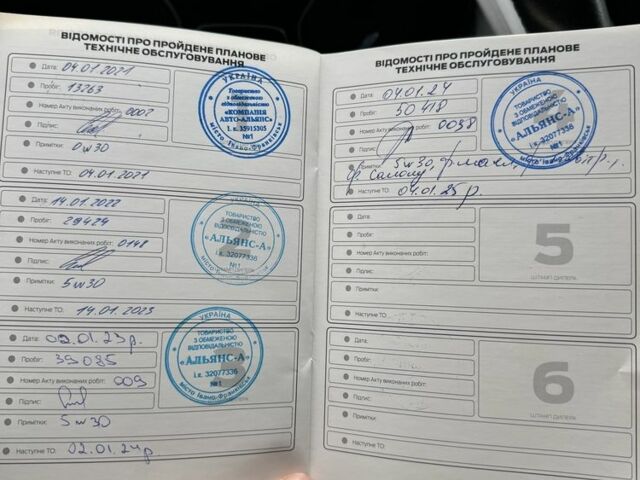 ВІДОМОСТІ ПРО ПРОЙДЕНЕ ПЛАНОВЕ
ТЕХНІЧНЕ ОБСЛУГОВУВАННЯ
Дата: 04.01.2021
Пробіг: 13263
Номер Акту виконаних робіт: 0007
Підпис:
Примітки:
0W30
Наступне ТО: 04.01.2021
УКРАЇНА
Товариство
з обмеженою
відповідальністю
«КОМПАНІЯ
АВТО-АЛЬЯНС»
І. к. 35915305
№1
місто Івано-Франківськ
Дата: 14.01.2022
Пробіг: 29424
Номер Акту виконаних робіт: 0148
Підпис:
Примітки:
5W30
Наступне ТО: 14.01.2023
2
УКРАЇНА
ТОВАРИСТВО
З ОБМЕЖЕНОЮ
ВІДПОВІДАЛЬНІСТЮ
«АЛЬЯНС-А»
і.к. 32077336
№1
Дата: 02.01.23р.
Пробіг: 39085
Номер Акту виконаних робіт: 009
Підпис:
Примітки:
5W30
Наступне ТО: 02.01.24р
УКРАЇНА
ТОВАРИСТВО
З ОБМЕЖЕНОЮ
ВІДПОВІДАЛЬНІСТЮ
«АЛЬЯНС-А»
і.к. 32077336
№1
місто Івано-Франківськ
ВІДОМОСТІ ПРО ПРОЙДЕНЕ ПЛАНОВЕ
ТЕХНІЧНЕ ОБСЛУГОВУВАННЯ
Дата: 04.01.24
Пробіг: 50418
Номер Акту виконаних робіт: 0038
Підпис:
Примітки: 5W30,
ф. Салону,
Наступне ТО: 04.01.25 р.
УКРАЇНА
ТОВАРИСТВО
З ОБМЕЖЕНОЮ
ВІДПОВІДАЛЬНІСТЮ
«АЛЬЯНС-А»
і.к. 32077336
№1
місто Івано-Франківськ
Дата:
Пробіг:
Номер Акту виконаних робіт:
Підпис:
Примітки:
Наступне ТО:
5
ШТАМП ДИЛЕРА
Дата:
Пробіг:
Номер Акту виконаних робіт:
Підпис:
Примітки:
Наступне ТО:
6
ШТАМП ДИЛЕРА